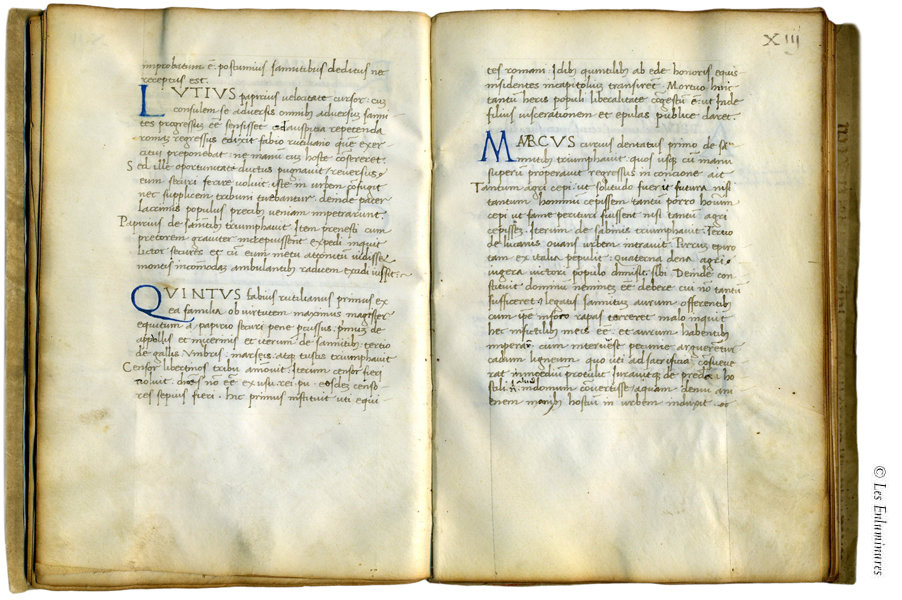 improbatum ē. postumius samnitibus deditus nec
receptus est.
LVTIVS papirius velocitate cursor. cū
consulem se adversis omnib adversus samni
tes progressū eē sensisset ad auspitia repetenda
romā regressus edixit fabio rutiliano quē exer
citui preponebat. ne manū cū hoste cōsereret.
Sed ille oportunitate ductus pugnavit. reversus
eum securi ferire voluit. iste in urbem cōfugit
nec supplicem tribuni tuebantur. deinde pater
lacrimis populus precibus veniam impetrarunt.
Papirius de samnitib triumphavit. Item prenesti cum
pretorem graviter increpuisset expedi inquit
lictor secures. et cū eum metu attonitū vidisset
montis incōmodā ambulantib radicem excidi iussit.
QVINTVS fabius rutilianus primus ex
ea familia ob virtutem maximus. magister
equitum a papirio securi pene pcussus. primū de
appollis et nucernis et iterum de samnitib, tertio
de gallis Vmbris. marseis. atq tuscis triumphavit
Censor libertinos tribu amovit. Iterum censor fieri
noluit. dices nō eē ex usu rei. pu. eosdē censo
res sepius fieri. hic primus instituit uti equi
XIII
tes romani. Idib quintilib ab ede honoris equis
insidentes in capitoliū transirent. Mortuo huic
tantū heris populi liberalitate cōgestū ē. ut inde
filius viscerationem et epulas publice daret.
MARCVS curius dentatus primo de sā
mnitib triumphavit. quos usq ad manū
superū properavit regressus in concione ait
Tantum agri cepi. ut solitudo fuerit futura nisi
tantum hominū cepissem. tantū porro hominū
cepi ut fame perituri fuissent nisi tantū agri
cepissē. Iterum de sabinis triumphavit. Tertio
de lucanis ovans urbem intravit. Pirrū epiro
tam ex italia pepulit. quaterna dena agri
iugera viritī populo divisit. sibi. Deinde con
stituit dominū neminē eē debere cui nō tantū
sufficeret. legatis samnitiū aurum offerentib
cum ipē in foco rapas torreret malo inquit
hec in fictilib meis eē. et aurum habentib
imperare. cum intervēse pecunie argueretur
cadum ligneum quo uti ad sacrificia cōsueve
rat in mediū protulit. Iuravitq de preda ho
stili. Aquā in domum covertisse. aquam denū ani
enem manub hostiū in urbem induxit. ac
© Les Enluminures